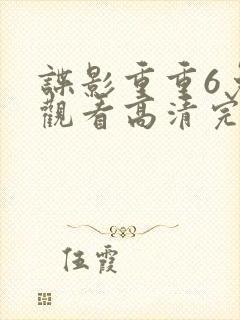 諜影重重6
觀看高清完
伍霞